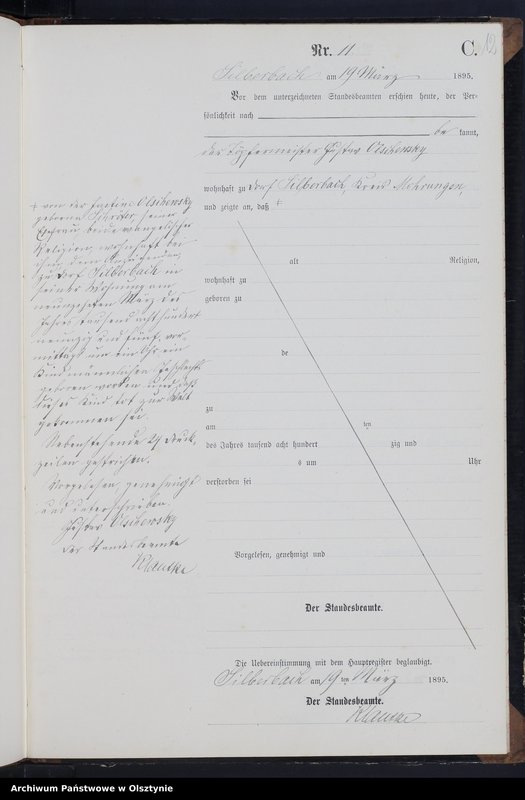 Nr. 11. C. 12
Silberbach am 19 März 1895.
Vor dem unterzeichneten Standesbeamten erschien heute, der Per-
sönlichkeit nach
be kannt,
der Töpfermeister Gustav Olschewsky
wohnhaft zu Dorf Silberbach, Kreis Mohrungen,
und zeigte an, daß +
+ von der Olschewsky
geborene seiner
Ehefrau, beide evangelischer
Religion, wohnhaft bei
ihm dem Anzeigenden,
zu Dorf Silberbach in
seiner Wohnung am
neunzehnten März des
Jahres tausend acht hundert
neunzig und fünf, vor-
mittags um ein Uhr ein
Kind männlichen Geschlechts
geboren worden und daß
dieses Kind tot zur Welt
gekommen sei.
Nebenstehende Druck-
zeilen gestrichen.
Vorgelesen, genehmigt
und unterschrieben
Gustav Olschewsky
Der Standesbeamte
Klautke
alt Religion,
wohnhaft zu
geboren zu
de
zu
am ten
des Jahres tausend acht hundert zig und
s um Uhr
verstorben sei
Vorgelesen, genehmigt und
Der Standesbeamte.
Die Uebereinstimmung mit dem Hauptregister beglaubigt.
Silberbach am 19 ten März 1895.
Der Standesbeamte.
Klautke
Archiwum Państwowe w Olsztynie